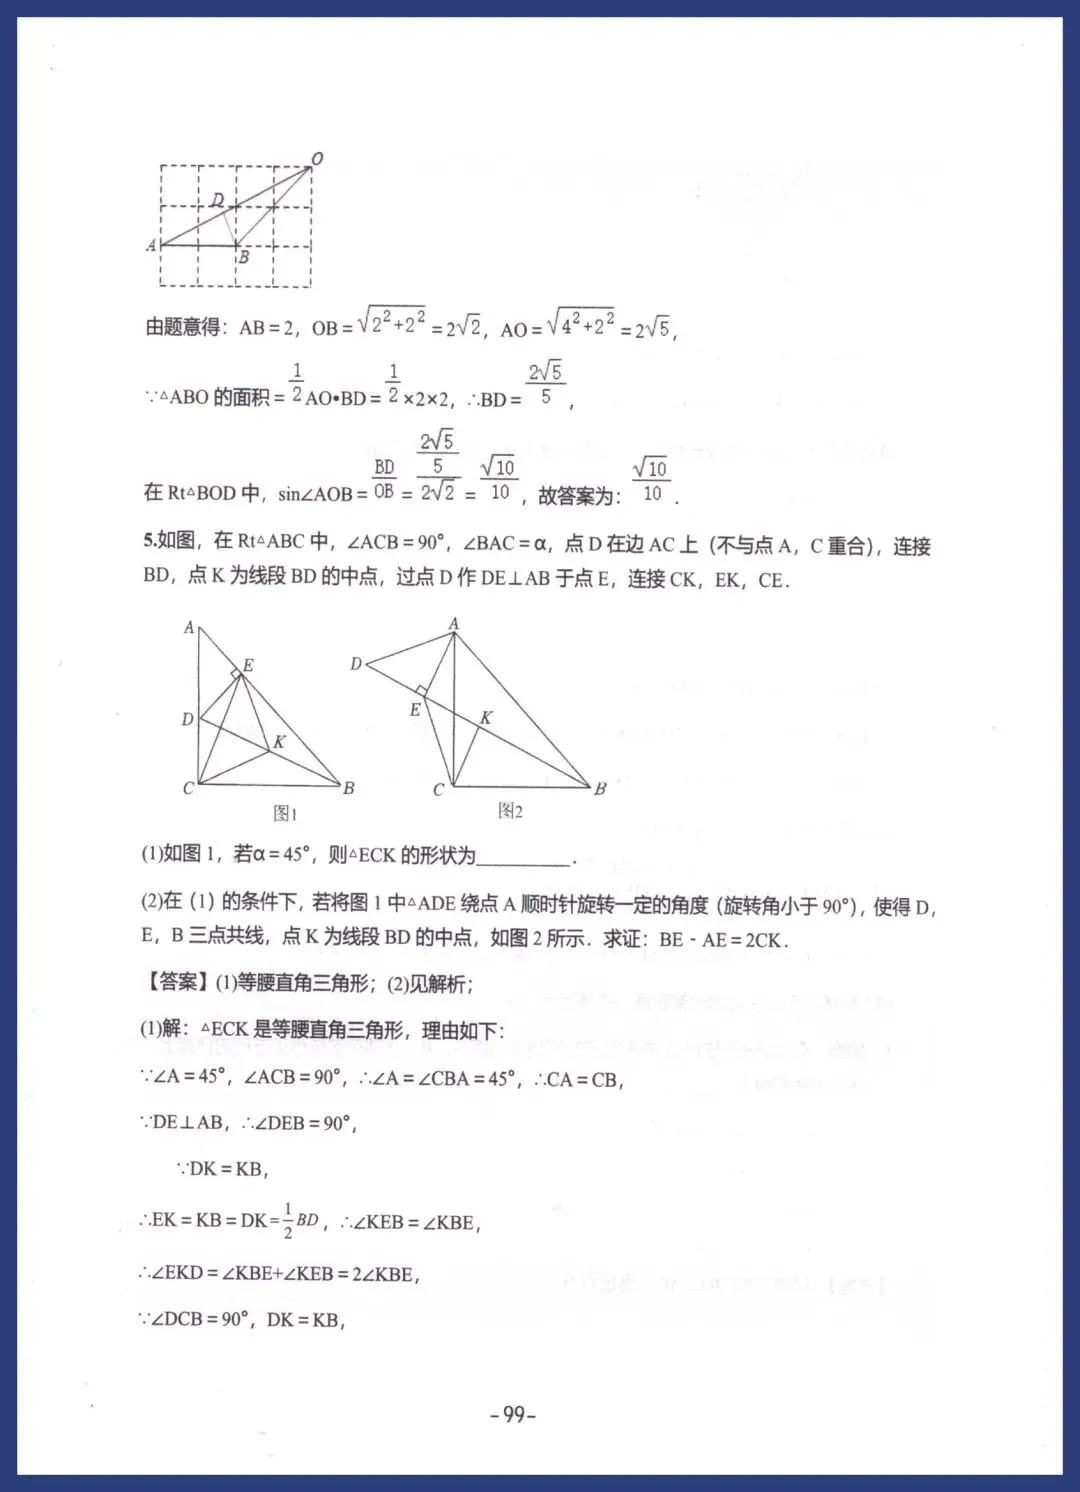 O
D
A
B
由题意得：AB=2，OB=√(2²+2²)=2√2，AO=√(4²+2²)=2√5，
∵△ABO 的面积=1/2 AO•BD=1/2×2×2，∴BD=2√5/5，
在 Rt△BOD 中，sin∠AOB=BD/OB=(2√5/5)/(2√2)=√10/10，故答案为：√10/10．
5.如图，在 Rt△ABC 中，∠ACB=90°，∠BAC=α，点 D 在边 AC 上（不与点 A，C 重合），连接
BD，点 K 为线段 BD 的中点，过点 D 作 DE⊥AB 于点 E，连接 CK，EK，CE．
A
E
D
K
C
B
图1
A
D
E
K
C
B
图2
(1)如图 1，若α=45°，则△ECK 的形状为__________．
(2)在（1）的条件下，若将图 1 中△ADE 绕点 A 顺时针旋转一定的角度（旋转角小于 90°），使得 D，
E，B 三点共线，点 K 为线段 BD 的中点，如图 2 所示．求证：BE﹣AE=2CK．
【答案】(1)等腰直角三角形；(2)见解析；
(1)解：△ECK 是等腰直角三角形，理由如下：
∵∠A=45°，∠ACB=90°，∴∠A=∠CBA=45°，∴CA=CB，
∵DE⊥AB，∴∠DEB=90°，
∵DK=KB，
∴EK=KB=DK=1/2 BD，∴∠KEB=∠KBE，
∴∠EKD=∠KBE+∠KEB=2∠KBE，
∵∠DCB=90°，DK=KB，
-99-